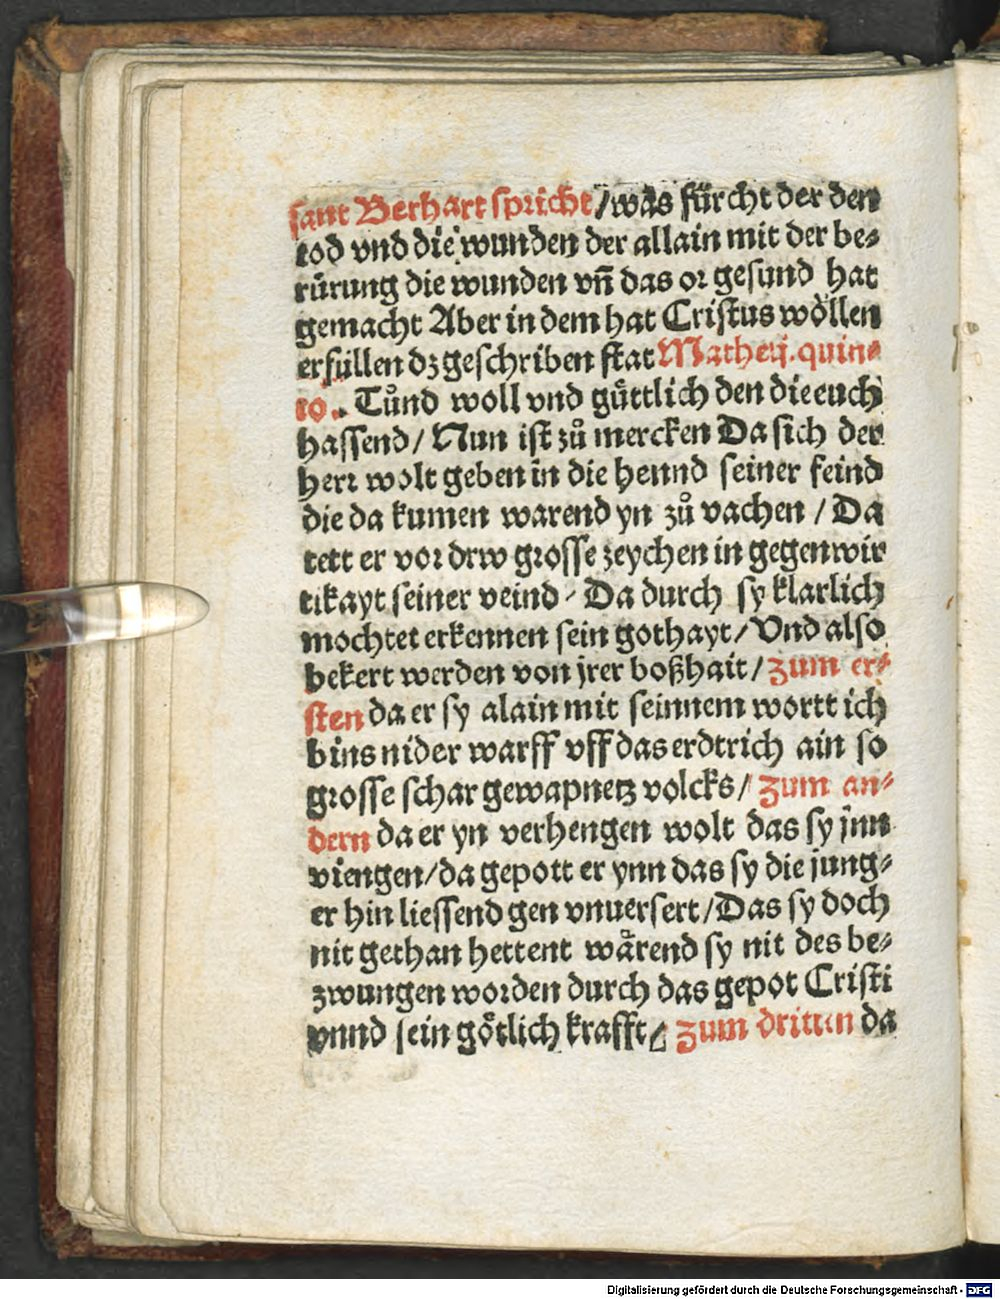 sant Berhart spricht/was fürcht der den
tod vnd die wunden der allain mit der be⸗
rürung die wunden vn̄ das or gesund hat
gemacht Aber in dem hat Cristus wöllen
erfüllen dz geschriben stat Mathei̇j. quin⸗
to. Tůnd woll vnd güttlich den die euch
hassend/ Nun ist zů mercken Da sich der
herr wolt geben in die hennd seiner feind
die da kumen warend yn zů vachen / Da
tett er vor drw grosse zeychen in gegenwir
tikayt seiner veind / Da durch sy klarlich
mochtet erkennen sein gothayt/ Vnd also
bekert werden von jrer boßhait/ zum er⸗
sten da er sy alain mit seinnem wortt ich
bins nider warff vff das erdtrich ain so
grosse schar gewapnetz volcks/ zum an⸗
dern da er yn verhengen wolt das sy jnn
viengen/da gepott er ynn das sy die jung⸗
er hin liessend gen vnuersert/Das sy doch
nit gethan hettent wärend sy nit des be⸗
zwungen worden durch das gepot Cristi
vnnd sein götlich krafft/ zum dritten da
Digitalisierung gefördert durch die Deutsche Forschungsgemeinschaft - DFG